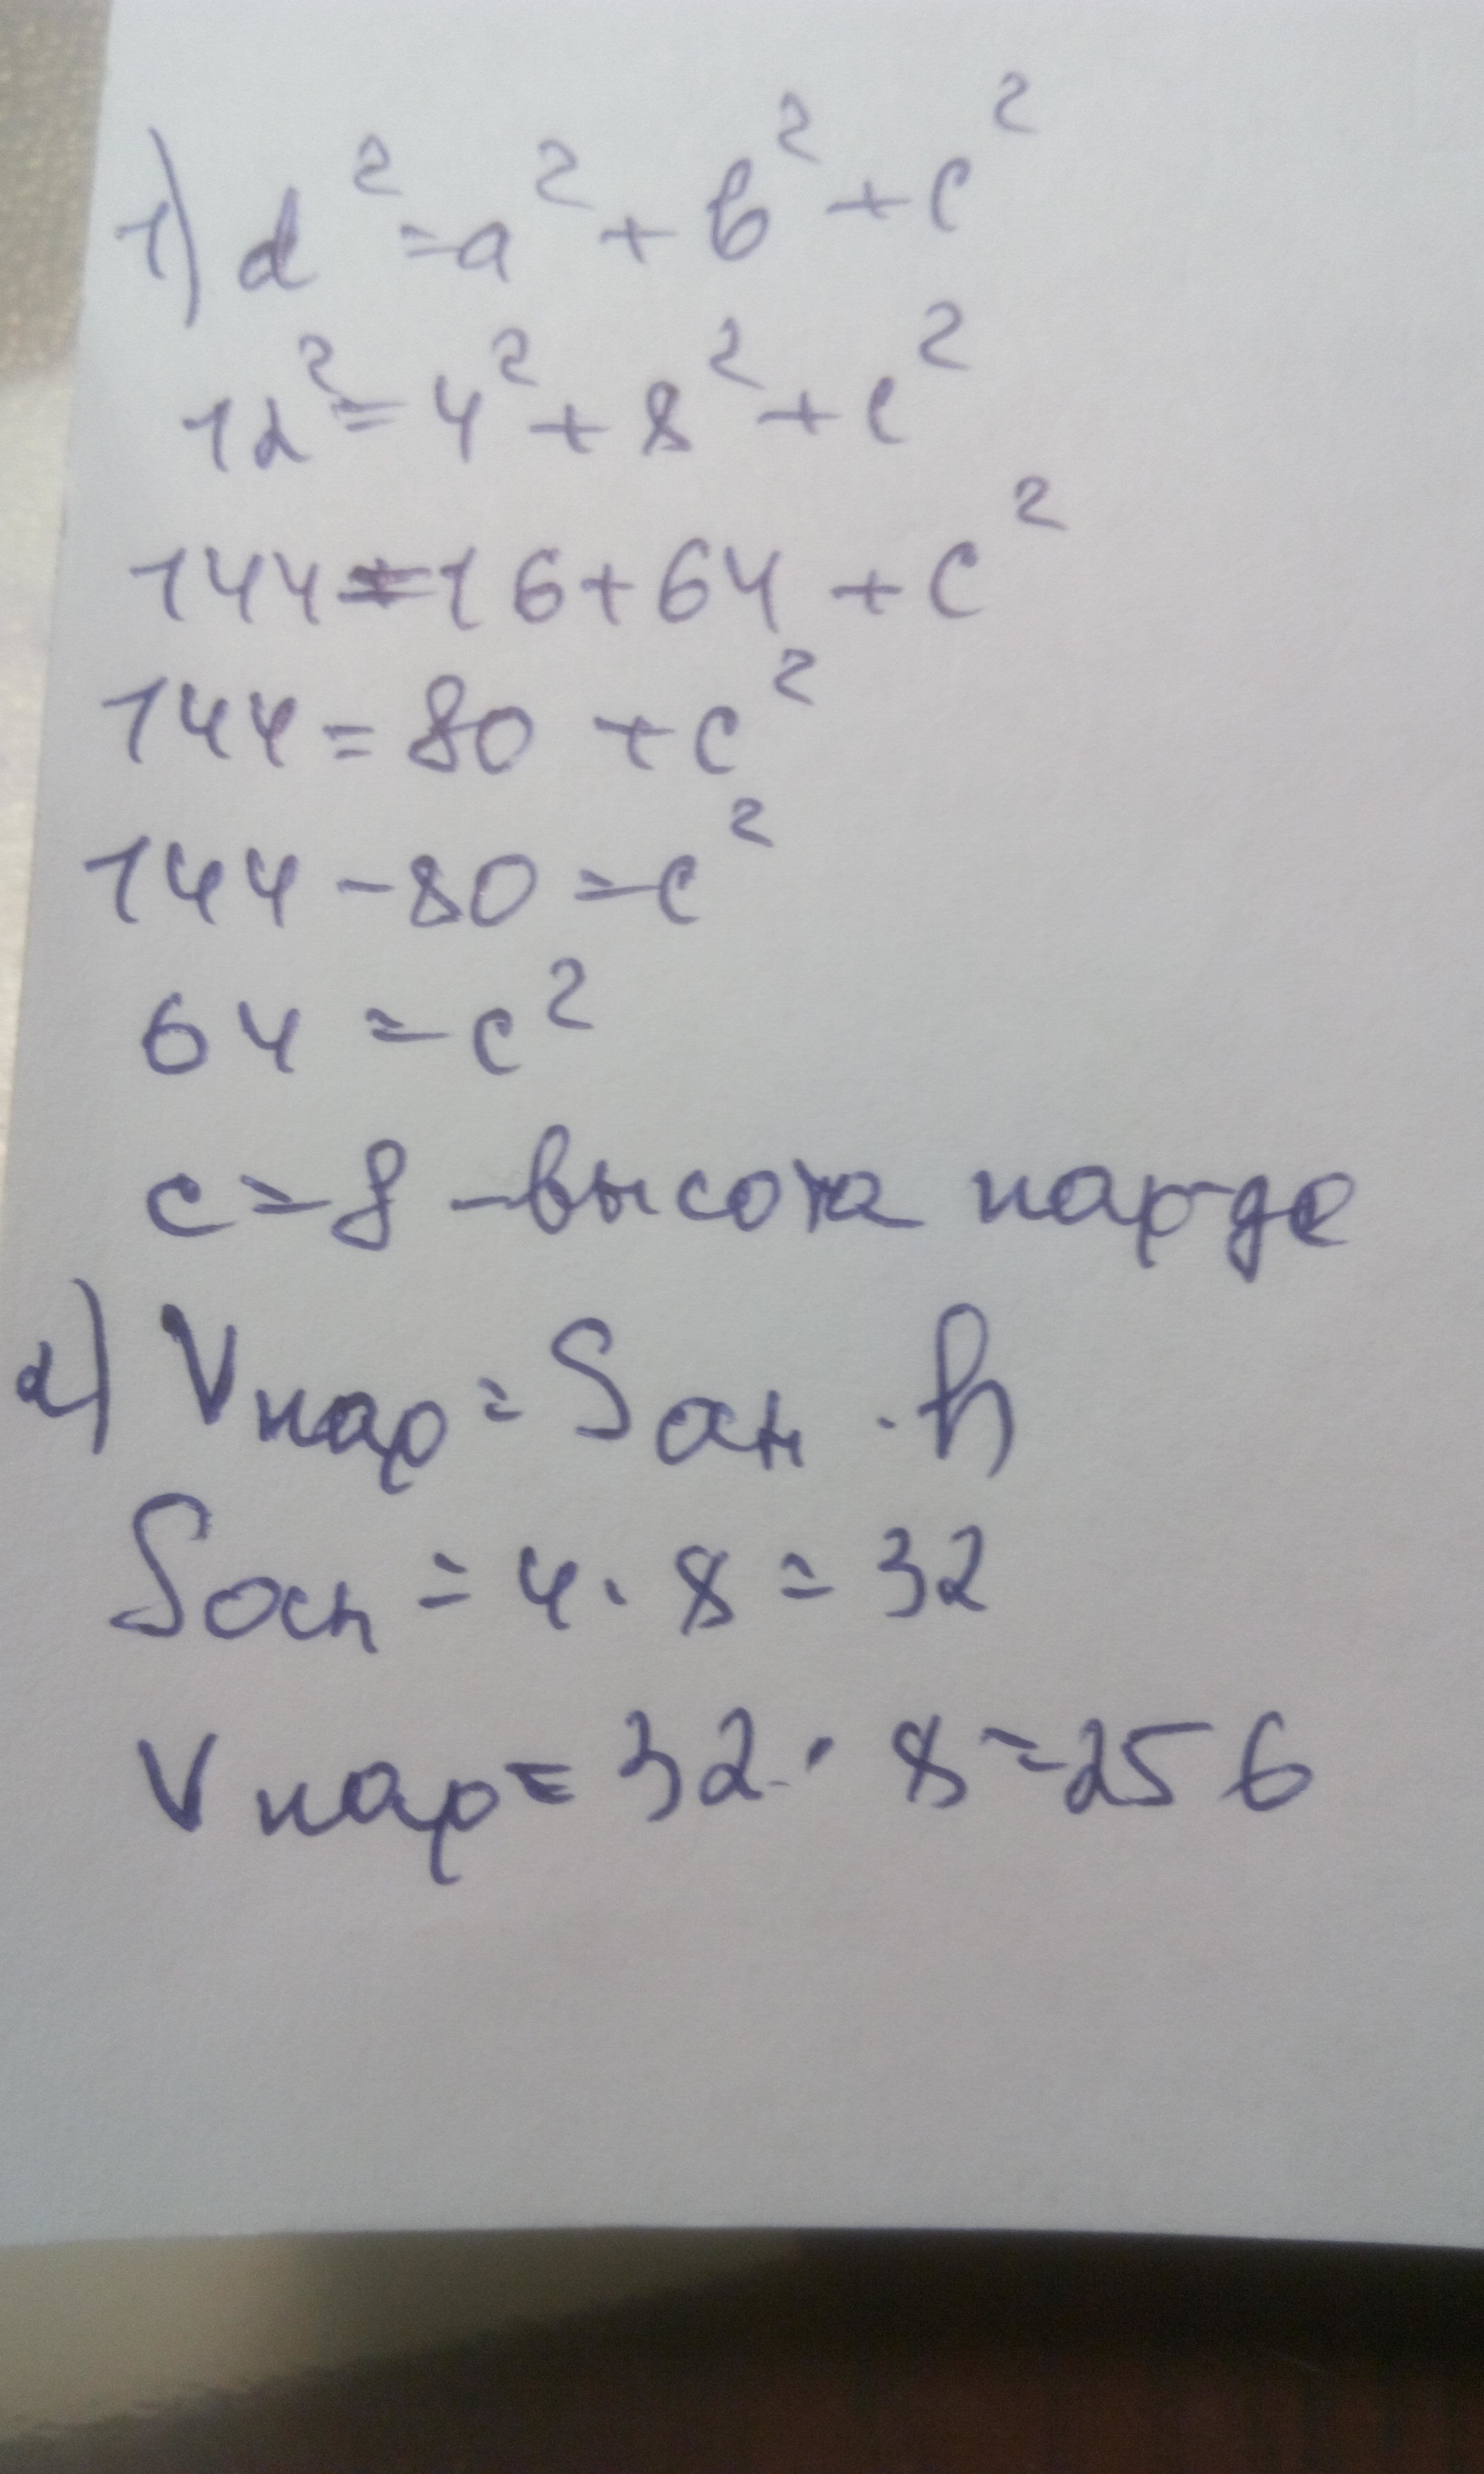 1) d² = a² + b² + c²
12² = 4² + 8² + c²
144 = 16 + 64 + c²
144 = 80 + c²
144 - 80 = c²
64 = c²
c = 8 - высота пар-да
2) Vпар = Sосн · h
Sосн = 4 · 8 = 32
Vпар = 32 · 8 = 256